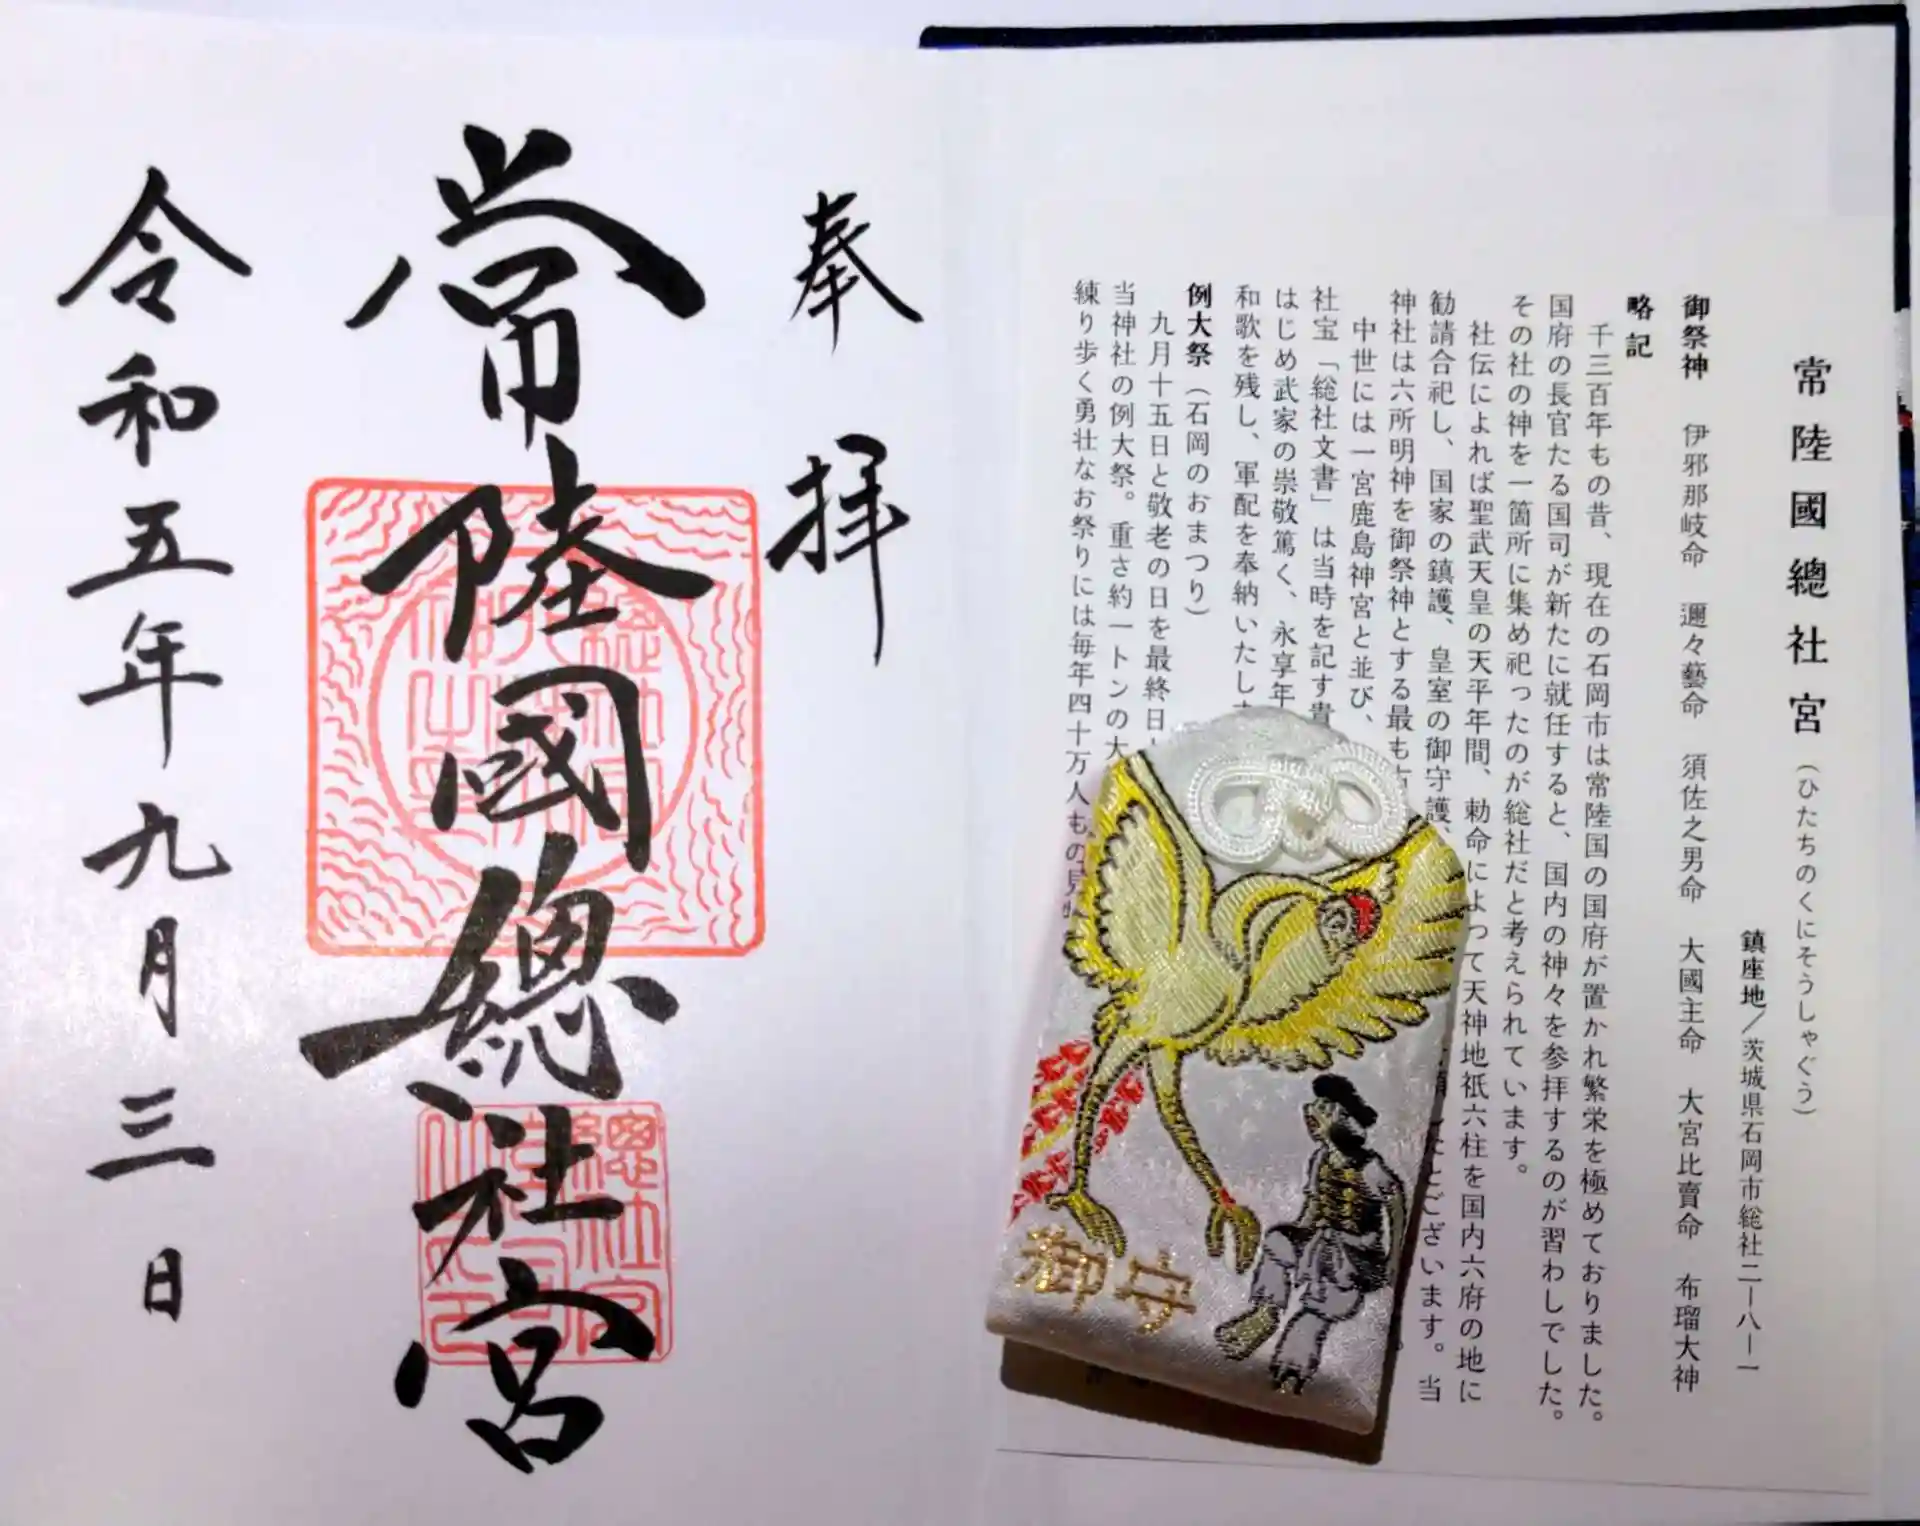 常陸國總社宮（ひたちのくにそうしゃぐう）
鎮座地／茨城県石岡市総社二ー八ー一
御祭神　伊邪那岐命　邇々藝命　須佐之男命　大國主命　大宮比賣命　布瑠大神
略記
千三百年もの昔、現在の石岡市は常陸国の国府が置かれ繁栄を極めておりました。
国府の長官たる国司が新たに就任すると、国内の神々を参拝するのが習わしでした。
その社の神を一箇所に集め祀ったのが総社だと考えられています。
社伝によれば聖武天皇の天平年間、勅命によって天神地祇六柱を国内六府の地に
勧請合祀し、国家の鎮護、皇室の御守護、
ございます。当
神社は六所明神を御祭神とする最も
中世には一宮鹿島神宮と並び、
社宝「総社文書」は当時を記す貴
はじめ武家の崇敬篤く、永享年
和歌を残し、軍配を奉納いたし
例大祭（石岡のおまつり）
九月十五日と敬老の日を最終日
当神社の例大祭。重さ約一トンの大
練り歩く勇壮なお祭りには毎年四十万人もの見
御守
奉拝
常陸國總社宮
令和五年九月三日